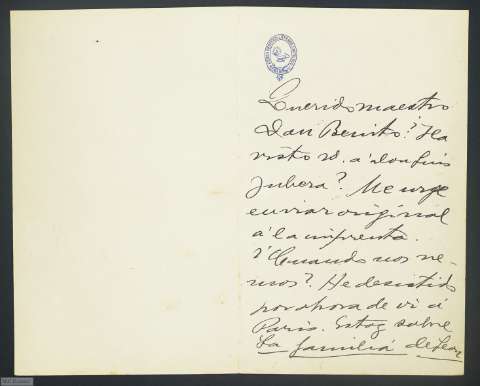 Querido maestro
Don Benito: ¿Ha
visto V. a Don Luis
Jubera? Me urge
enviar original
á la imprenta.
¿Cuando nos ve-
mos? He desistido
por ahora de ir á
Paris. Estoy sobre
La familia de León